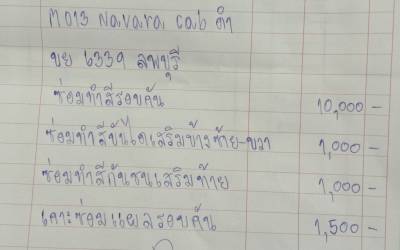 M013 Navara cab ดำ
บย 6339 ลพบุรี
ซ่อมทำสีรอบคัน 10,000 -
ซ่อมทำสีบันไดเสริมข้างซ้าย-ขวา 1,000 -
ซ่อมทำสีกันชนเสริมท้าย 1,000 -
เคาะซ่อมแผลรอบคัน 1,500 -